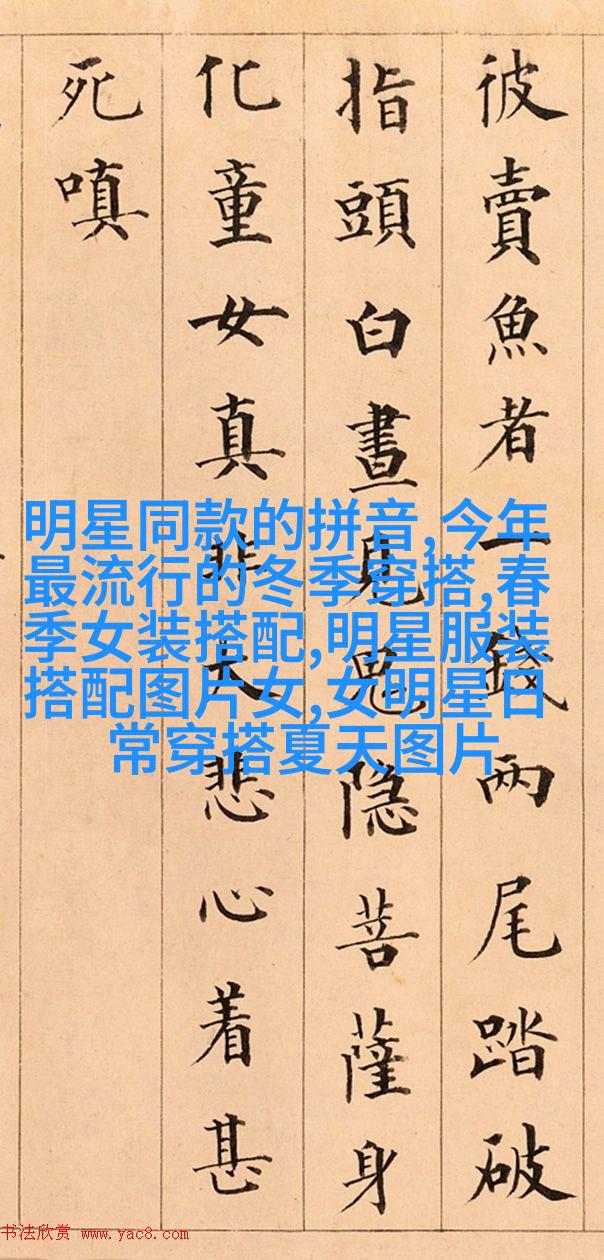 彼賣魚者一錢兩尾踏破
指頭白晝見鬼隐菩薩身
化童女真非大悲心着甚
死嗔
明星同款的拼音,今年
最流行的冬季穿搭,春
季女装搭配,明星服装
搭配图片女,女明星日
常穿搭夏天图片
书法欣赏 www.yac8.com